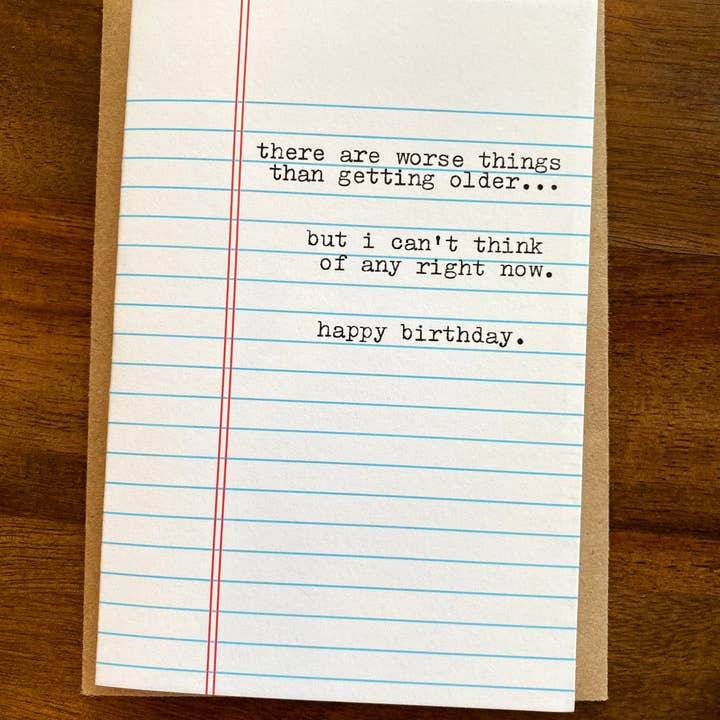 there are worse things
than getting older...
but i can't think
of any right now.
happy birthday.